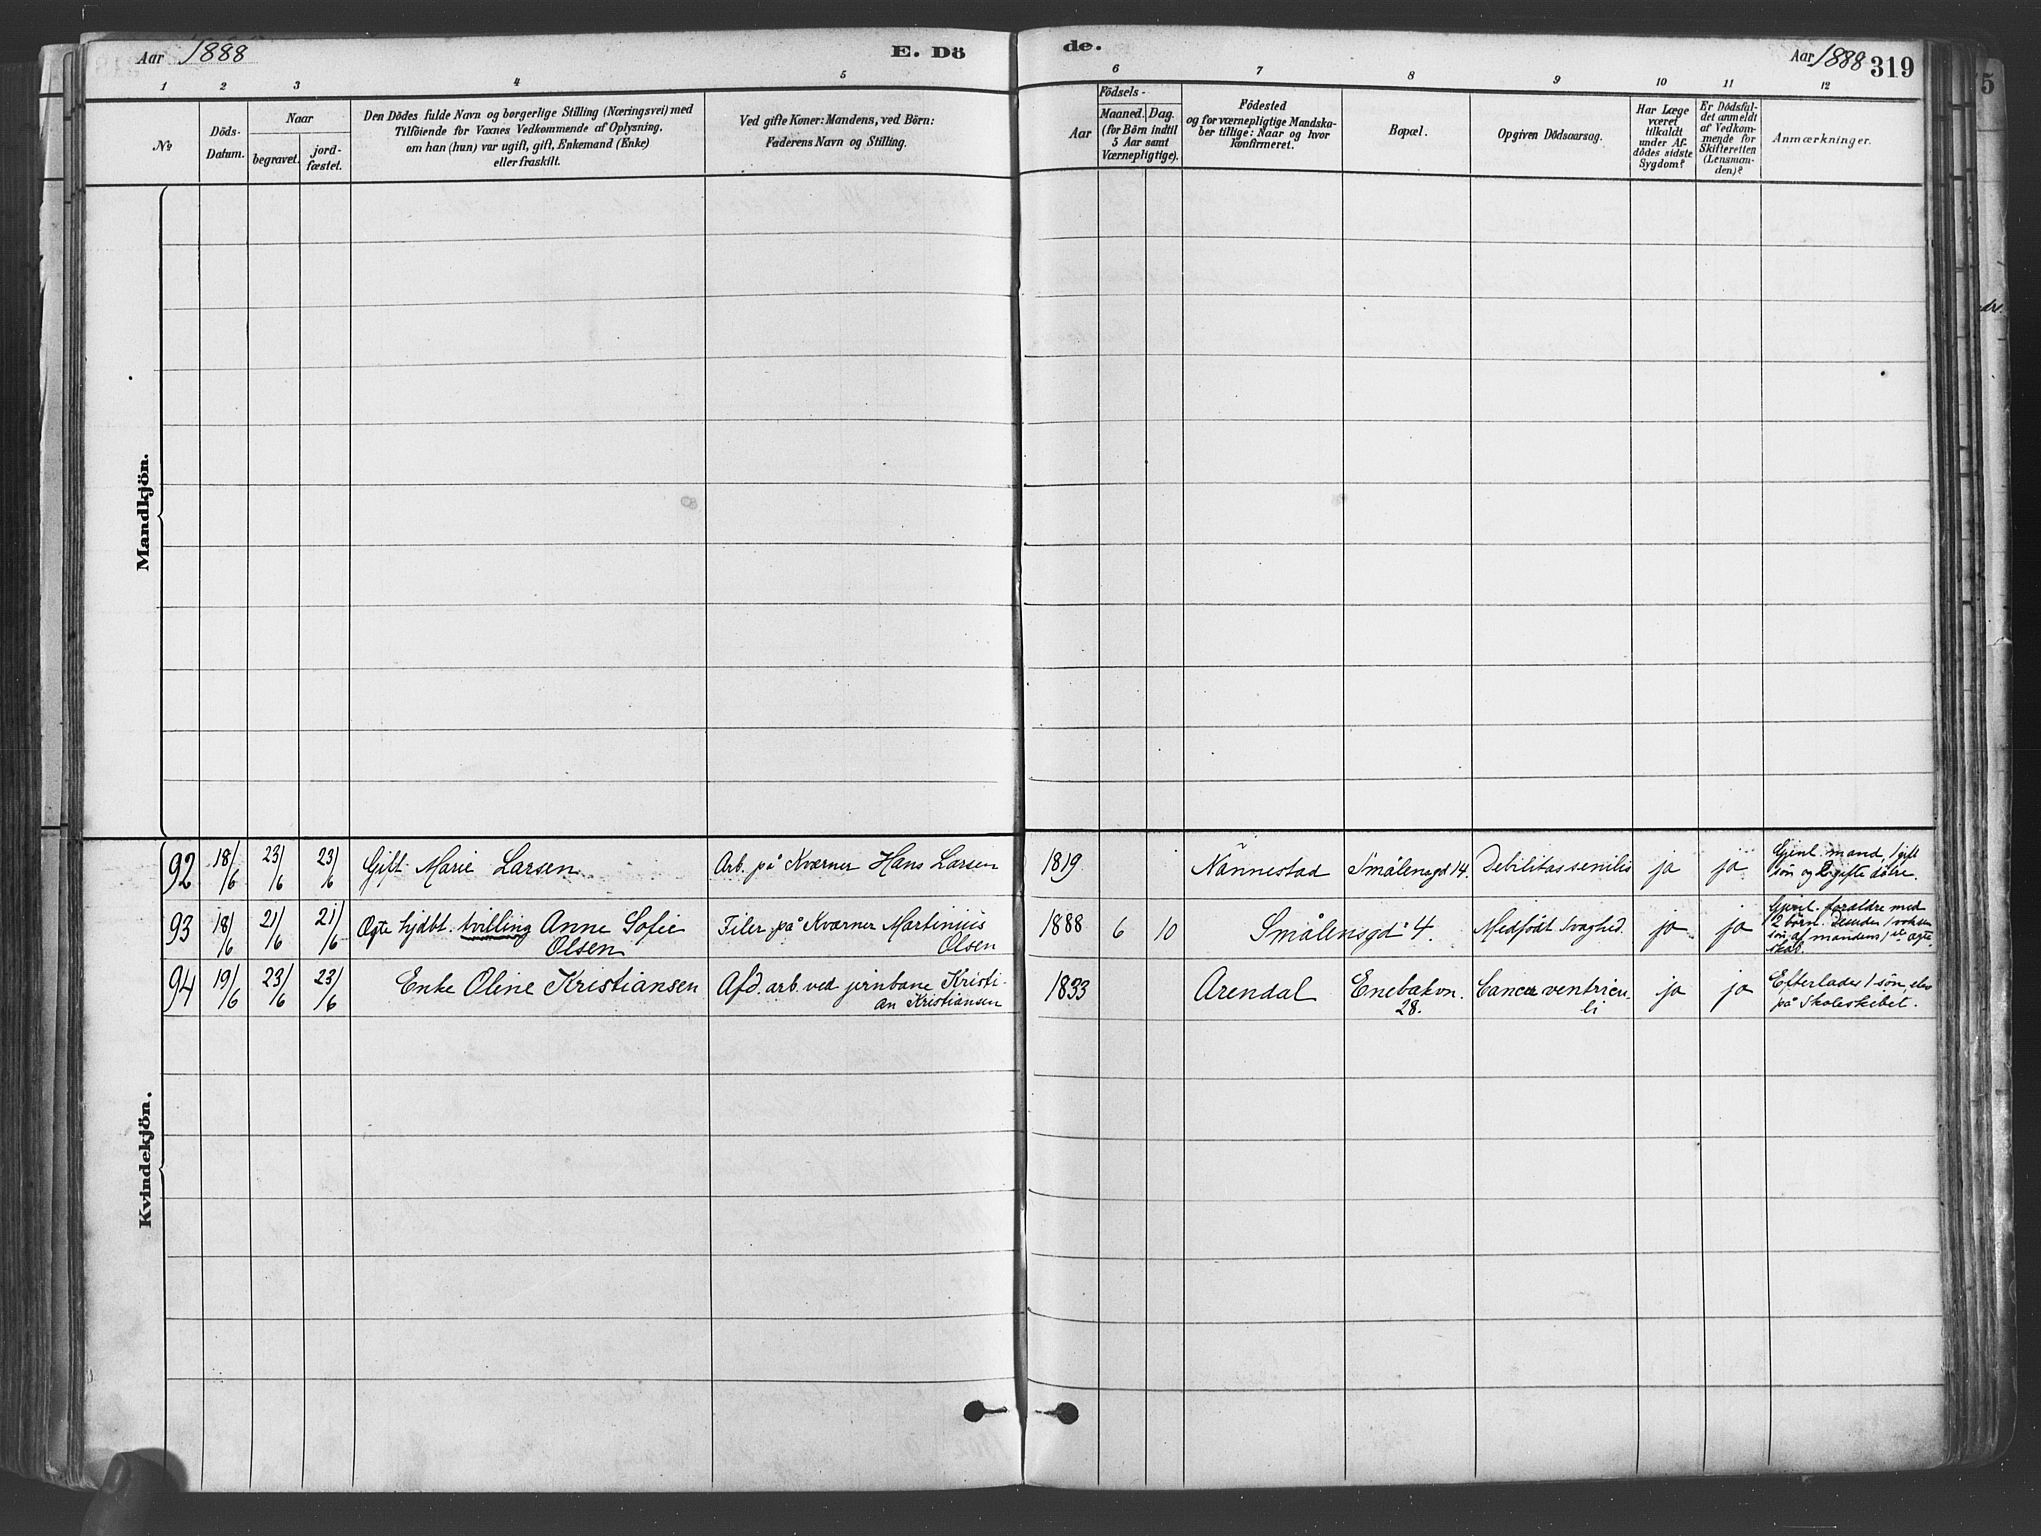 Aar 1888
E. Dö
de.
Aar 1888
319
1 2 3 4 5 6 7 8 9 10 11 12
№
Döds-
Datum.
Naar
begravet.
jord-
fæstet.
Den Dödes fulde Navn og borgerlige Stilling (Næringsvei) med
Tilföiende for Voxnes Vedkommende af Oplysning,
om han (hun) var ugift, gift, Enkemand (Enke)
eller fraskilt.
Ved gifte Koner: Mandens, ved Börn:
Faderens Navn og Stilling.
Födsels-
Aar
Maaned. Dag.
(for Börn indtil
5 Aar samt
Værnepligtige).
Födested
og for værnepligtige Mandska-
ber tillige: Naar og hvor
konfirmeret.
Bopæl.
Opgiven Dödsaarsag.
Har Læge
været
tilkaldt
under Af-
dödes sidste
Sygdom?
Er Dödsfal-
det anmeldt
af Vedkom-
mende for
Skifteretten
(Lensman-
den)?
Anmærkninger.
Mandkjön.
Kvindekjön.
92 18/6 23/6 23/6 Gift Marie Larsen Arb. på Kværner Hans Larsen 1819 Nannestad Smålensgd 14. Debilitas senilis ja ja Gjenl. mand, 1 gift
søn og 2 gifte døtre.
93 18/6 21/6 21/6 Ægte hjdbt. tvilling Anne Sofie
Olsen
Filer på Kværner Martinius
Olsen
1888 6 10 Smålensgd 4. Medfødt Svaghed. ja ja Gjenl. forældre med
2 børn. Desuden 1 voksen
søn af mandens 1ste ægte-
skab.
94 19/6 23/6 23/6 Enke Oline Kristiansen Afd. arb. ved jernbane Kristi-
an Kristiansen
1833 Arendal Enebakvn.
28.
Cancer ventricu-
li
ja ja Efterlader 1 søn, elev
på Skoleskibet.